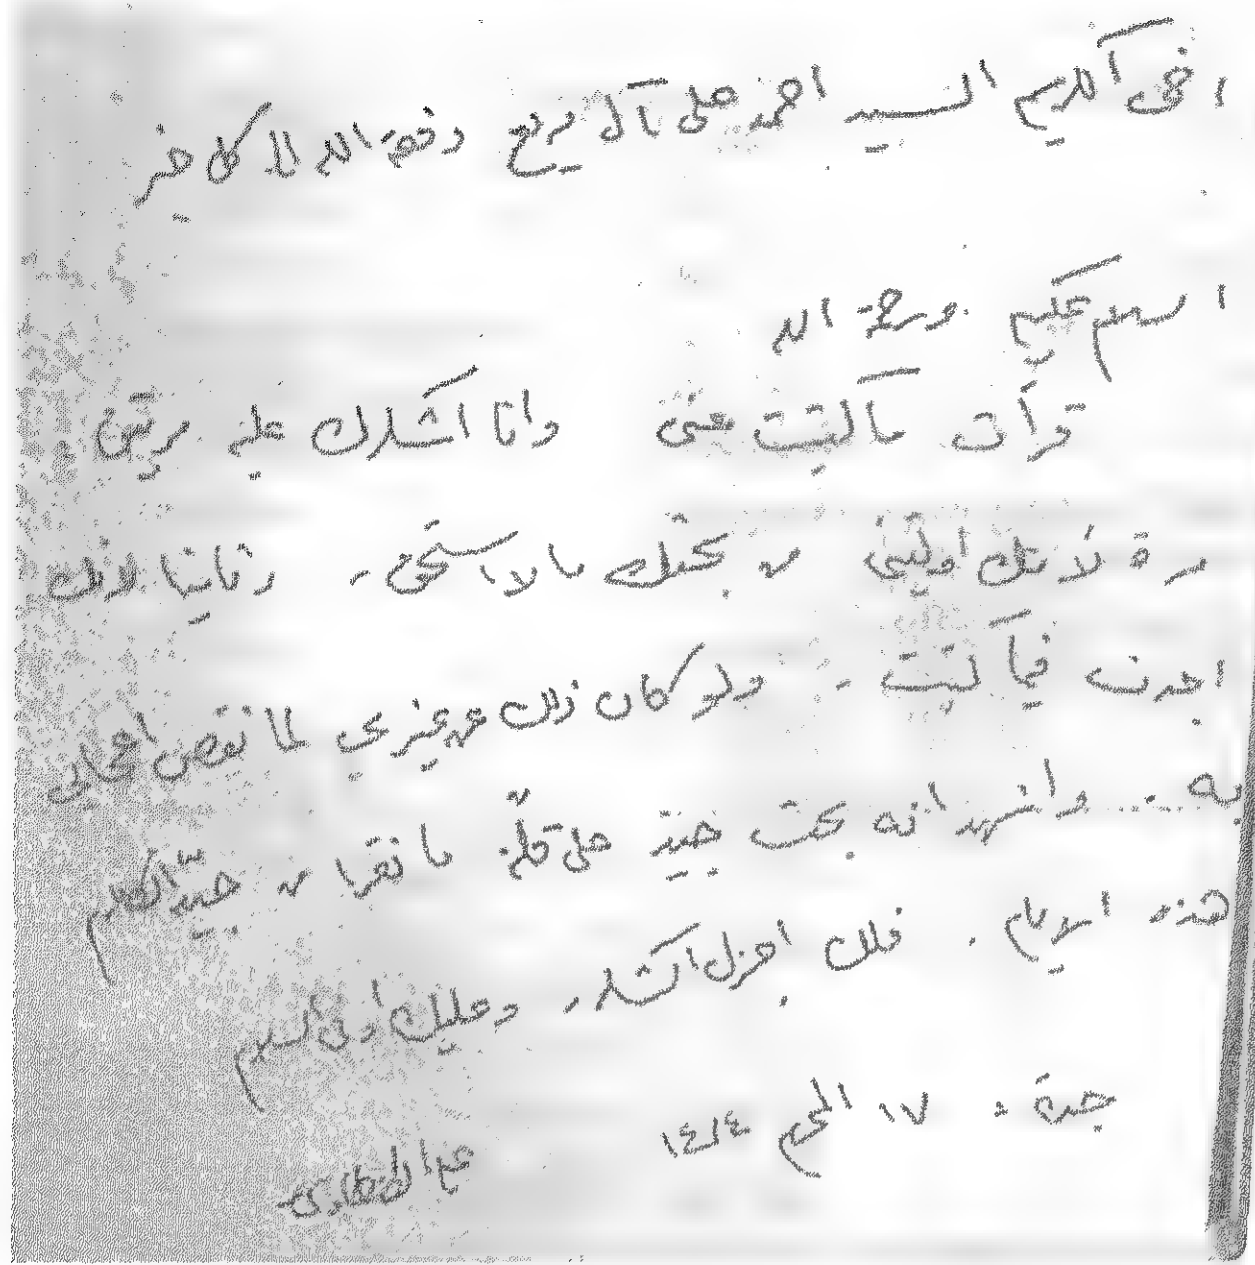 اخي الكريم السيد احمد علي آل مريع وفقه الله لكل خير
السلام عليكم ورحمة الله
قرأت ما كتبت عني وانا اشكرك عليه مرتين
مرة لانك اوليتني من بحثك ما لا استحق . وثانيا لانك
اجدت فيما كتبت . ولو كان ذلك عن غيري لما نقص اعجابي
به ... واشهد انه بحث جيد على قلة ما نقرا من جيد الكلام
هذه الايام . فلك اجزل الشكر . وعليك اوفى السلام
جدة : ١٧ المحرم ١٤١٤
علي الطنطاوي